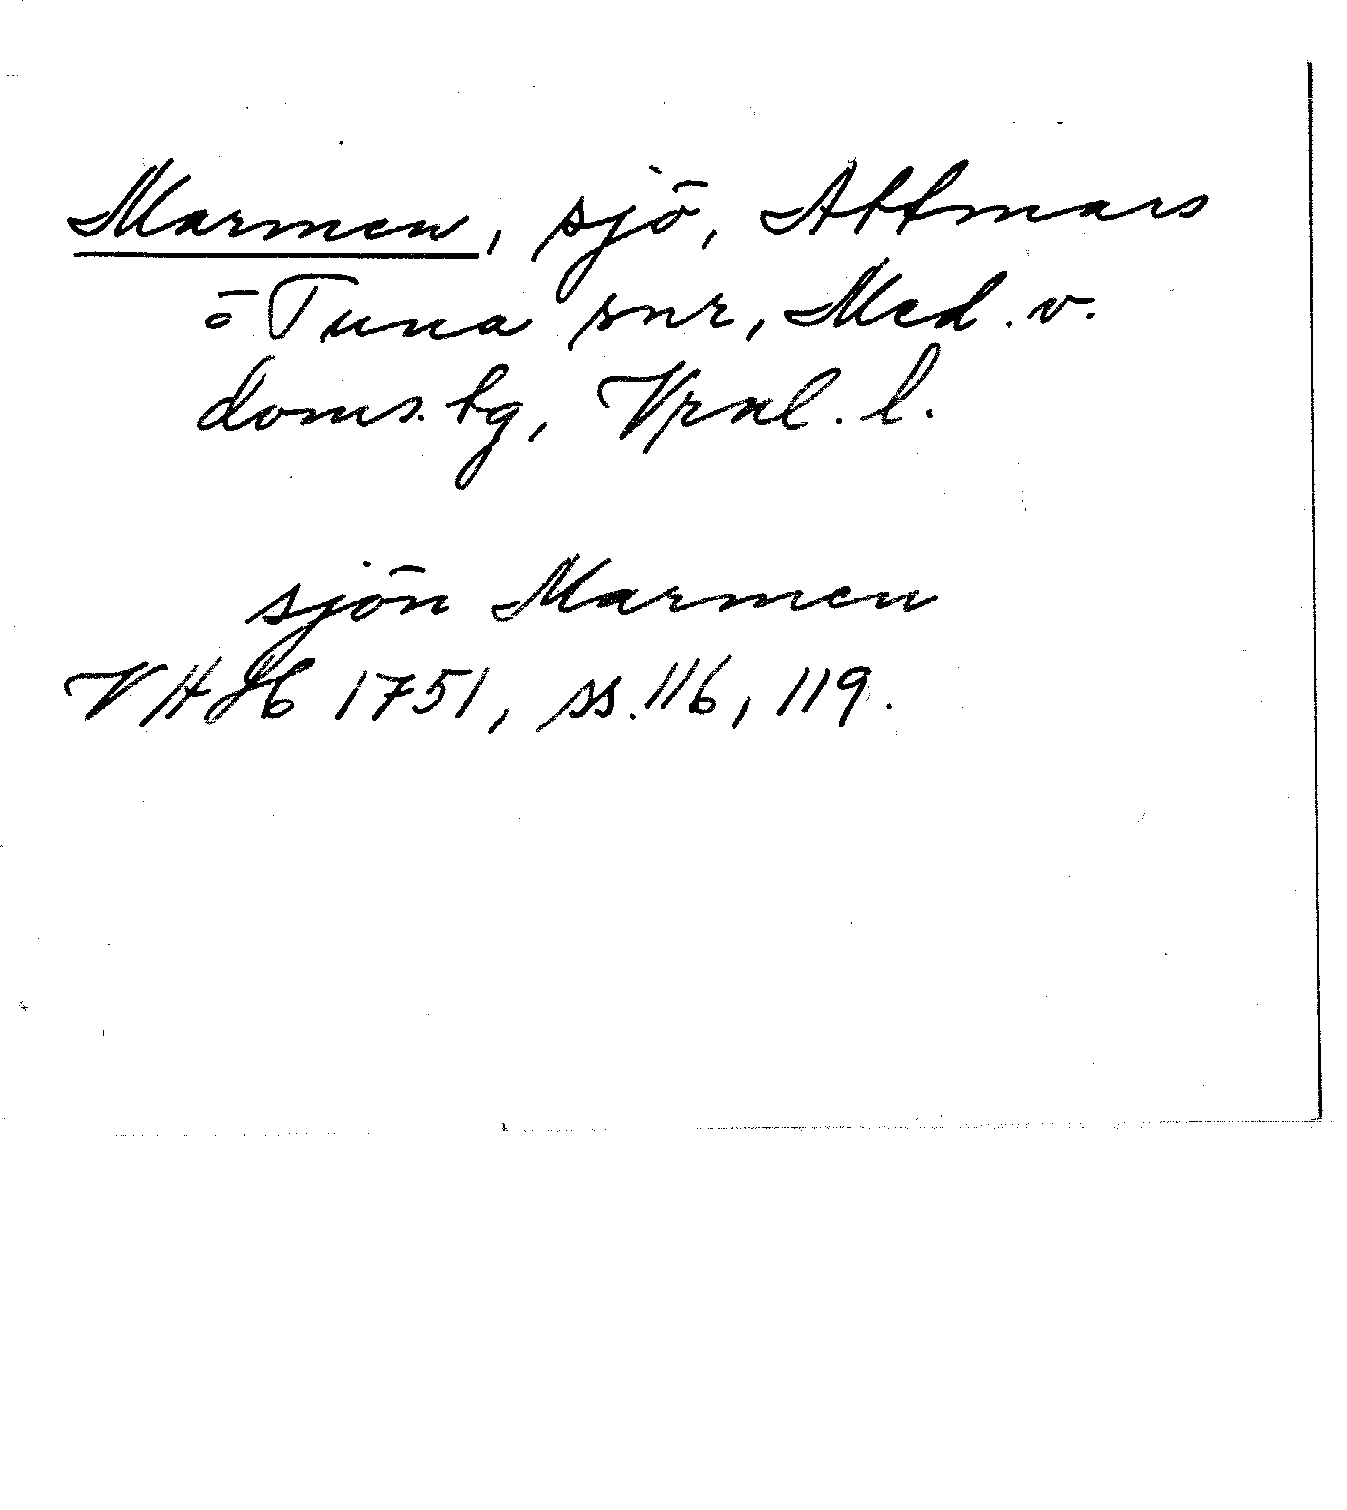 Marmen, sjö, Attmars
o Tuna snr, Med. v.
doms. tg, Vrnl. l.
sjön Marmen
V H H 1751, ss. 116, 119.